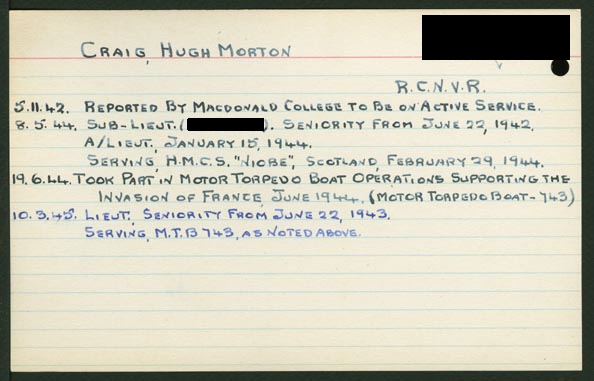 CRAIG, HUGH MORTON
R.C.N.V.R.
5.11.42. REPORTED BY MACDONALD COLLEGE TO BE ON ACTIVE SERVICE.
8.5.44. SUB-LIEUT. ( ). SENIORITY FROM JUNE 22, 1942,
A/LIEUT., JANUARY 15, 1944.
SERVING, H.M.C.S. "NIOBE", SCOTLAND, FEBRUARY 29, 1944.
19.6.44. TOOK PART IN MOTOR TORPEDO BOAT OPERATIONS SUPPORTING THE
INVASION OF FRANCE, JUNE 1944. (MOTOR TORPEDO BOAT - 743)
10.3.45. LIEUT., SENIORITY FROM JUNE 22, 1943.
SERVING, M.T.B 743, AS NOTED ABOVE.